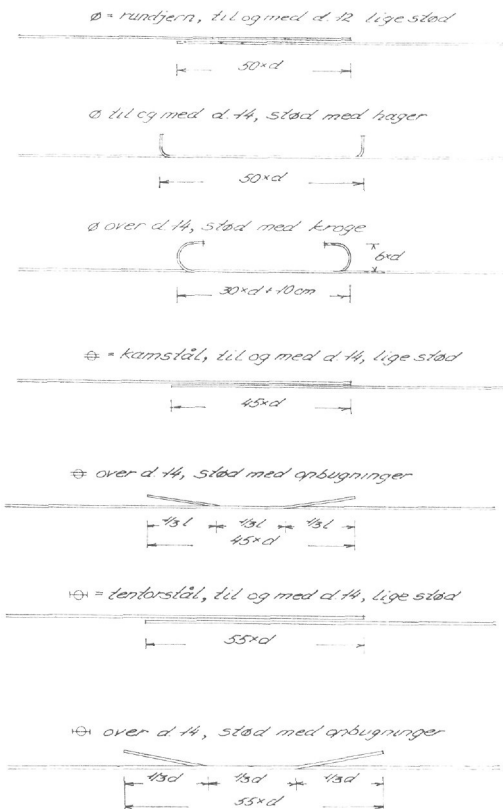 ø = rundjern, til og med d. 12 lige stød
50×d
ø til og med d. 14, stød med hager
50×d
ø over d. 14, stød med kroge
6×d
30×d + 10cm
= kamstål, til og med d. 14, lige stød
45×d
over d. 14, stød med opbugninger
1/3 l 1/3 l 1/3 l
45×d
= tentorstål, til og med d. 14, lige stød
55×d
over d. 14, stød med opbugninger
1/3 d 1/3 d 1/3 d
55×d